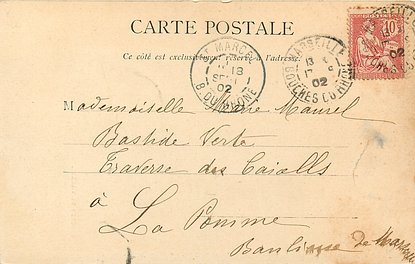 CARTE POSTALE
Ce côté est exclusivement réservé à l'adresse.
ST MARCEL
18
SEPT
02
B. DU RHONE
MARSEILLE
17
02
BOUCHES DU RHONE
10
02
Mademoiselle Marie Maurel
Bastide Verte
Traverse des Caiolls
à La Pomme
Banlieue de Marseille